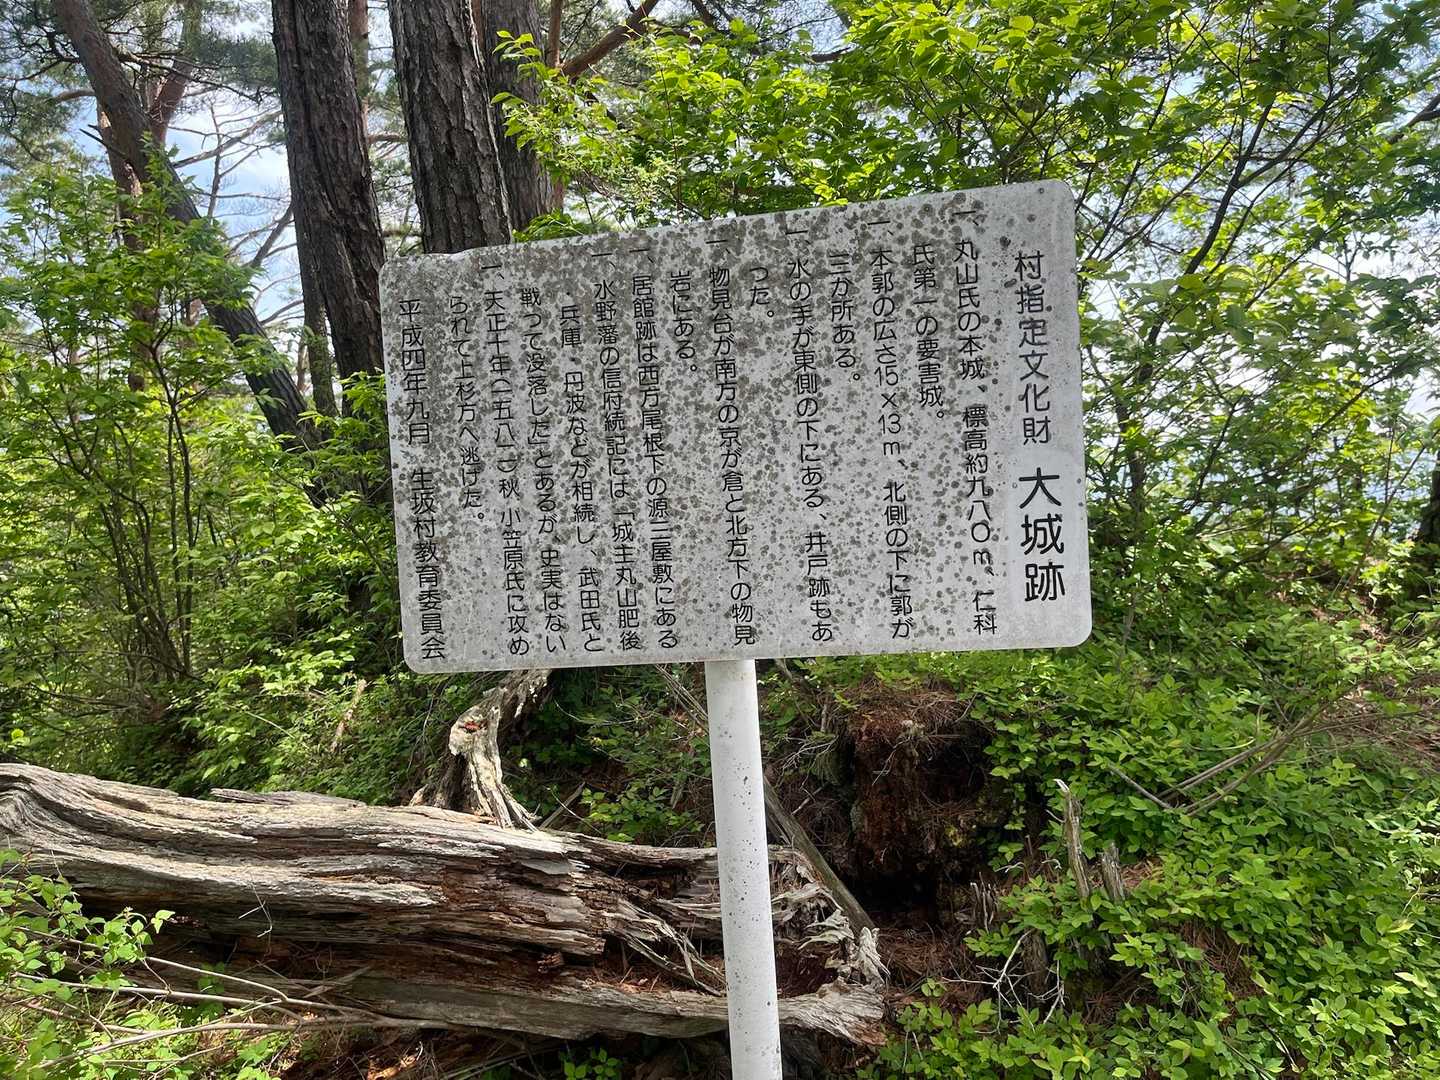 村指定文化財 大城跡
一、丸山氏の本城、標高約九八〇m、仁科
氏第一の要害城。
一、本郭の広さ15×13m、北側の下に郭が
三か所ある。
一、水の手が東側の下にある、井戸跡もあ
った。
一、物見台が南方の京が倉と北方下の物見
岩にある。
一、居館跡は西方尾根下の源三屋敷にある
一、水野藩の信府続記には「城主丸山肥後
兵庫、丹波などが相続し、武田氏と
戦って没落した」とあるが、史実はない
一、天正十年(一五八二)秋、小笠原氏に攻め
られて上杉方へ逃げた。
平成四年九月 生坂村教育委員会